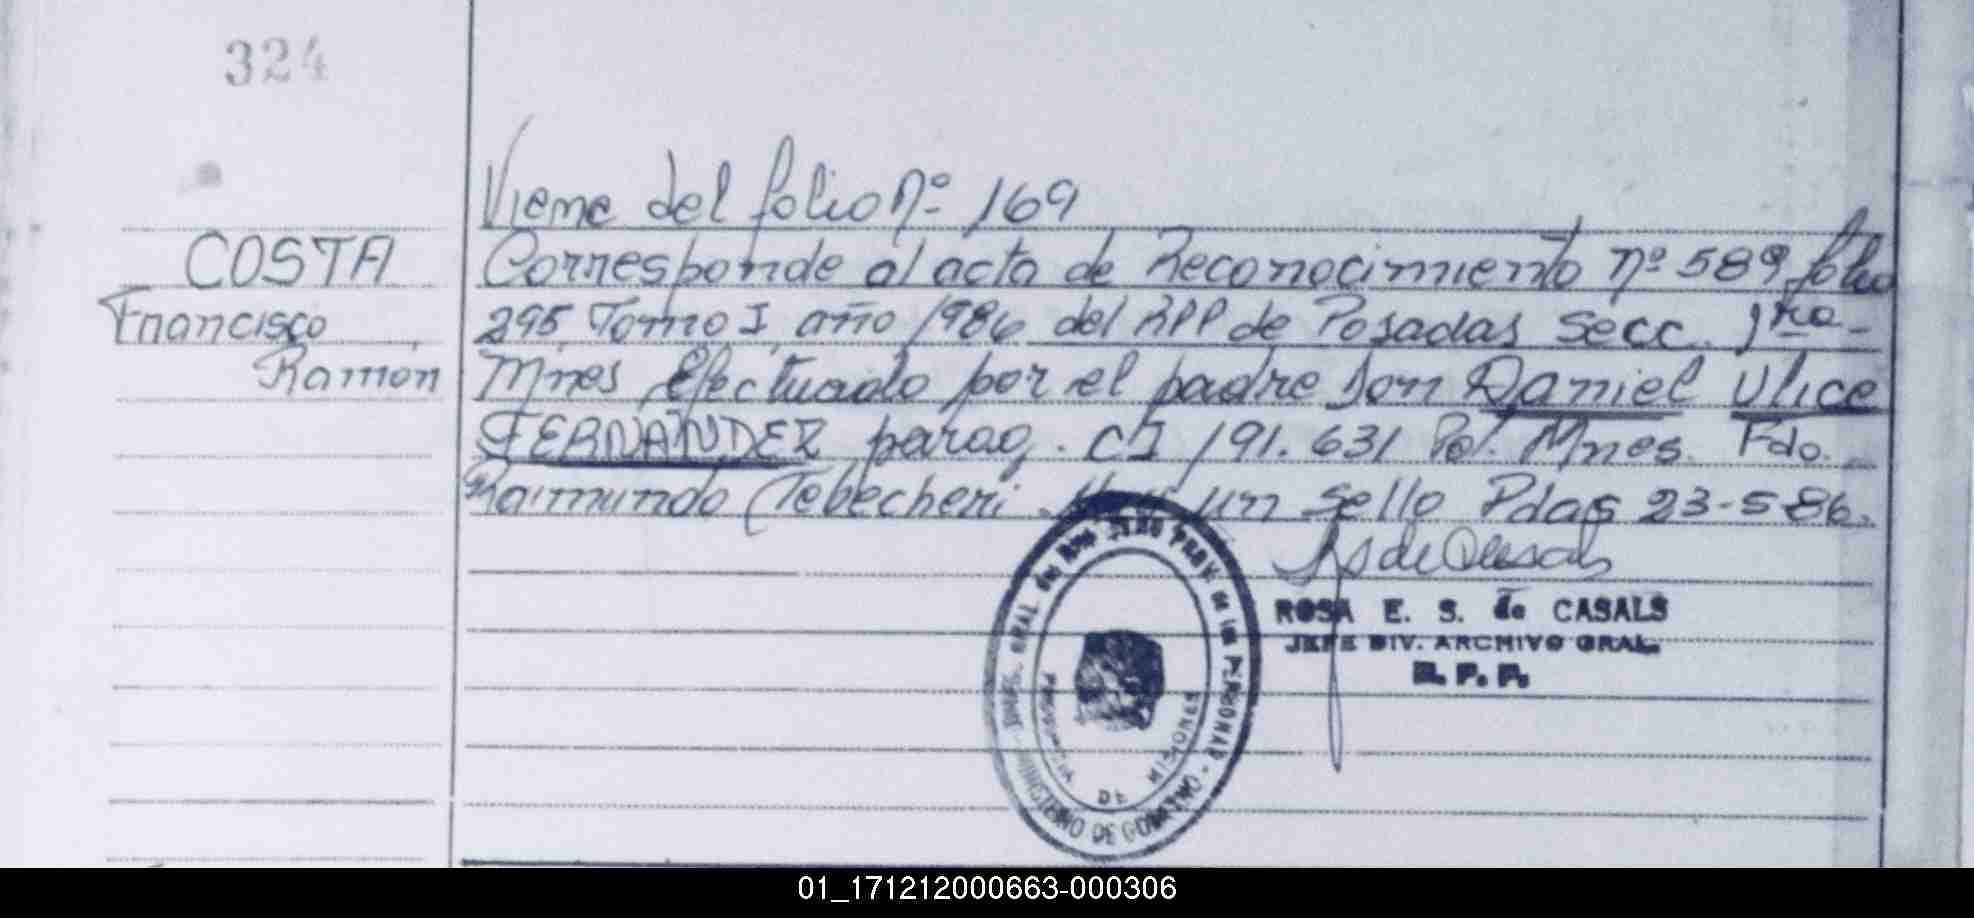 324
Viene del folio Nº 169
COSTA
Francisco
Ramón
Corresponde al acta de Reconocimiento nº 589 folio
295 Tomo I año 1986 del RPP de Posadas Secc. 1ra
Mnes Efectuado por el padre don Daniel Ulice
FERNANDEZ parag. CI 191.631 Pol. Mnes. Fdo.
Raimundo Tebecheri un sello Pdas 23-5-86.
ROSA E. S. de CASALS
JEFE DIV. ARCHIVO GRAL.
R. P. P.
GRAL de PROV de las PERSONAS
MINISTERIO DE GOBIERNO
PROVINCIA DE MISIONES
01_171212000663-000306